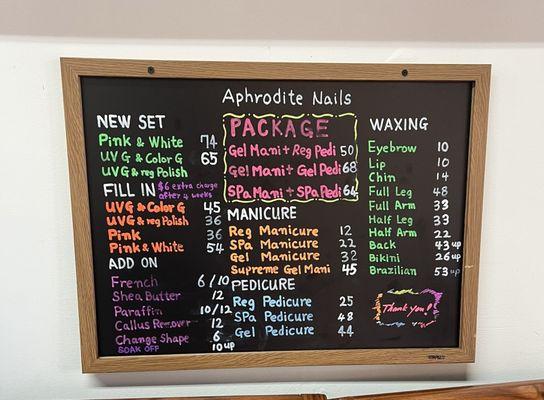 Aphrodite Nails
NEW SET
Pink & White 74
UV G & Color G 65
UVG & reg Polish
FILL IN $6 extra charge after 4 weeks
UVG & Color G 45
UVG & reg Polish 36
Pink 36
Pink & White 54
ADD ON
French 6/10
Shea Butter 12
Paraffin 10/12
Callus Remover 12
Change Shape 6
SOAK OFF 10 up
PACKAGE
Gel Mani + Reg Pedi 50
Gel Mani + Gel Pedi 68
SPa Mani + SPa Pedi 64
MANICURE
Reg Manicure 12
SPa Manicure 22
Gel Manicure 32
Supreme Gel Mani 45
PEDICURE
Reg Pedicure 25
SPa Pedicure 48
Gel Pedicure 44
WAXING
Eyebrow 10
Lip 10
Chin 14
Full Leg 48
Full Arm 33
Half Leg 33
Half Arm 22
Back 43 up
Bikini 26 up
Brazilian 53 up
Thank you!